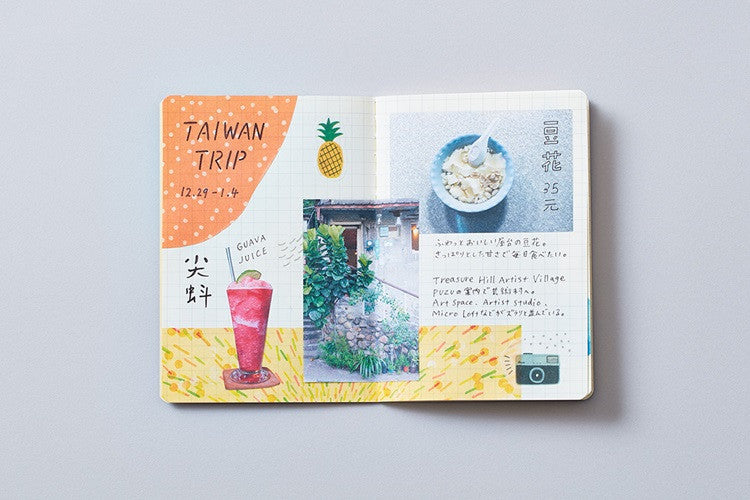 TAIWAN
TRIP
12.29-1.4
GUAVA
JUICE
尖蚪
豆花
35元
ふわっとおいしい屋台の豆花。
さっぱりとした甘さで毎日食べたい。
Treasure Hill Artist Village
PUZUの案内で芸術村へ。
Art Space、Artist Studio、
Micro Loftなどがズラリと並んでいる。